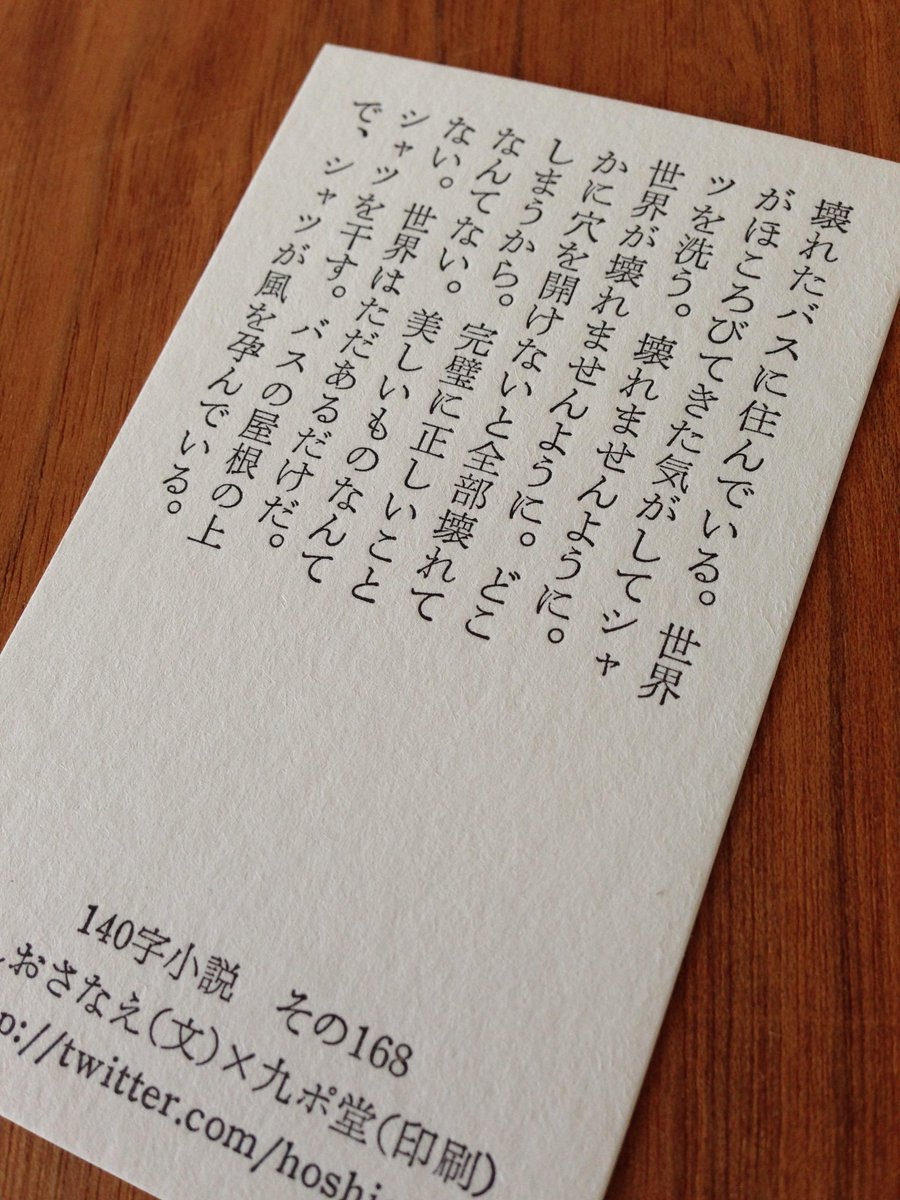 壊れたバスに住んでいる。世界
がほころびてきた気がしてシャ
ツを洗う。壊れませんように。
世界が壊れませんように。どこ
かに穴を開けないと全部壊れて
しまうから。完璧に正しいこと
なんてない。美しいものなんて
ない。世界はただあるだけだ。
シャツを干す。バスの屋根の上
で、シャツが風を孕んでいる。
140字小説 その168
おさなえ(文)×九ポ堂(印刷)
p://twitter.com/hoshi